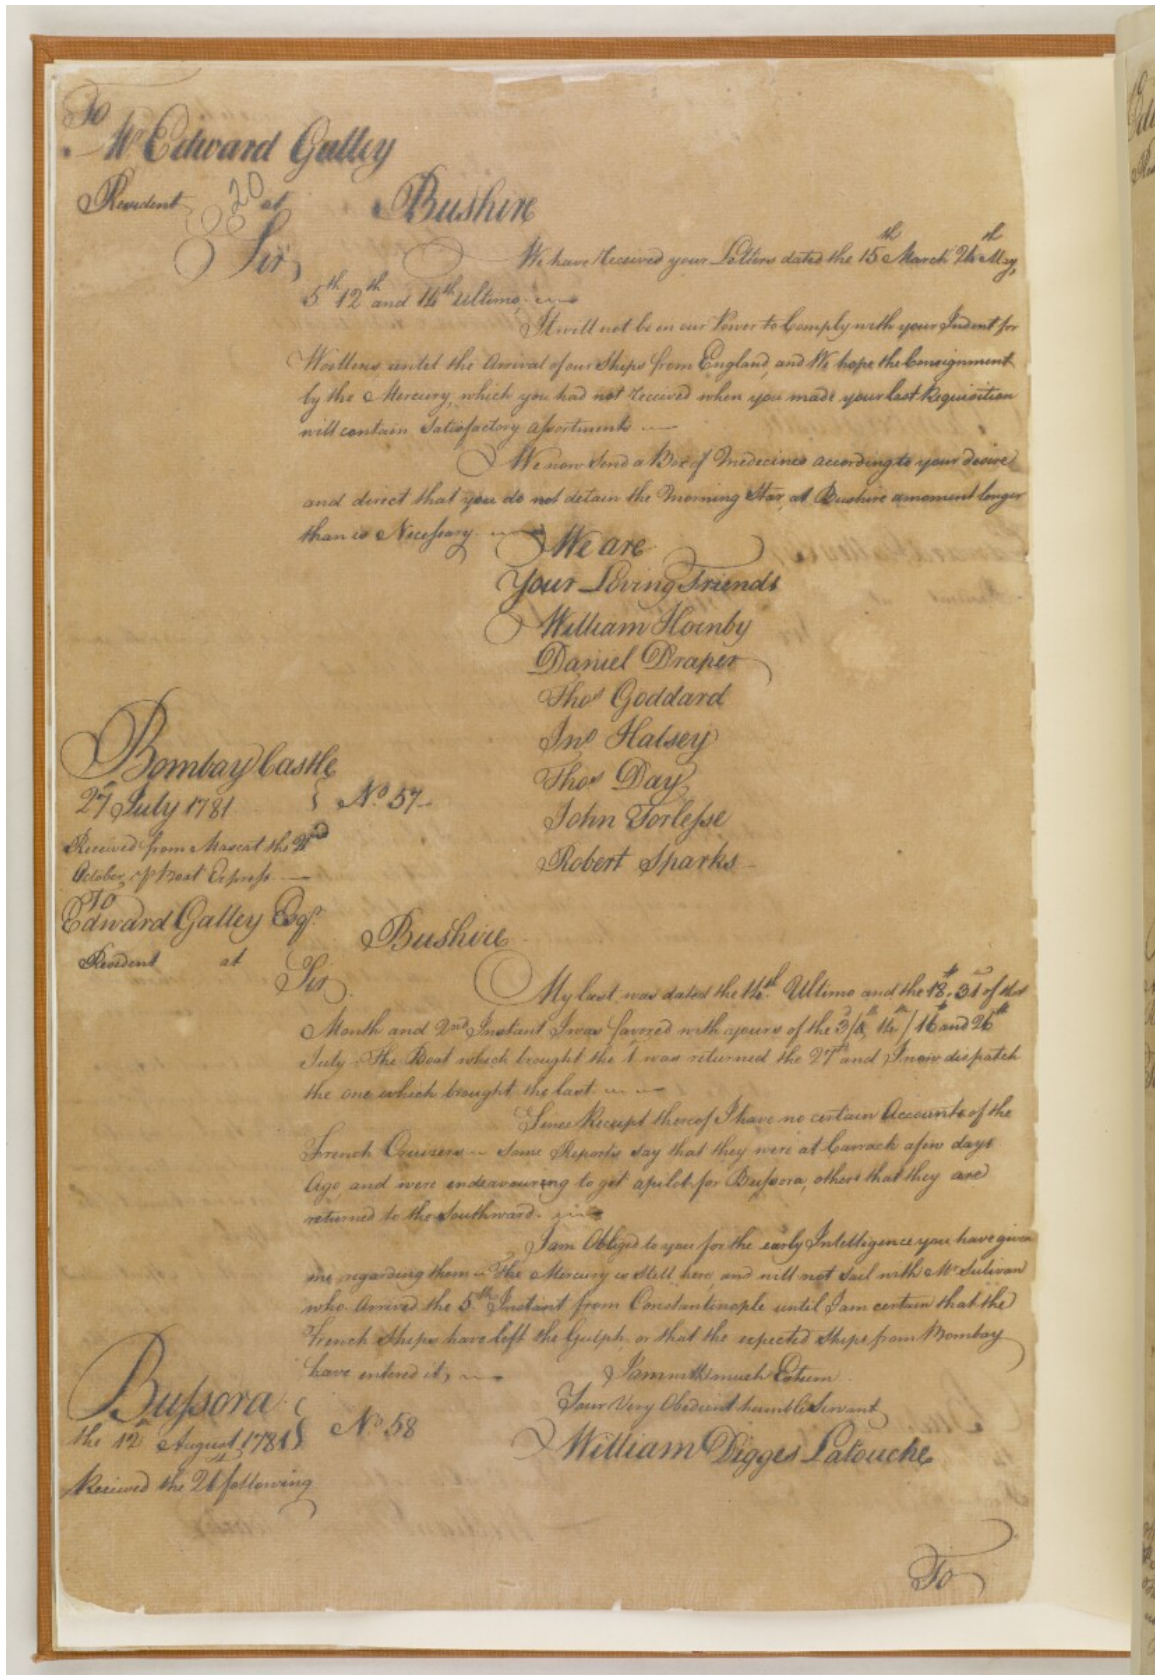 To
Mr Edward Galley
Resident at Bushire
20
Sir,
We have Received your Letters dated the 15th March 24th May,
5th 12th and 14th Ultimo.
It will not be in our Power to Comply with your Indent for
Woollens, until the Arrival of our Ships from England, and We hope the Consignment
by the Mercury, which you had not received when you made your last Requisition
will contain Satisfactory assortments
We now send a Box of Medicines according to your desire
and direct that you do not detain the Morning Star, at Bushire a moment longer
than is Necessary.
We are
Your Loving Friends
William Hornby
Daniel Draper
Thos Goddard
Jno Halsey
Thos Day
John Torlesse
Robert Sparks
Bombay Castle
27 July 1781 } No 57
Received from Mascat the
October, p Boat Express
To
Edward Galley Esqr.
Resident at Bushire
Sir,
My last was dated the 14th Ultimo and the 18, 31 of that
Month and 2nd Instant I was favored with yours of the 14 / 16 and 26th
July. The Boat which brought the 1 was returned the 27th and I now dispatch
the one which brought the last.
Since Receipt thereof I have no certain Accounts of the
French Cruizers some Reports say that they were at Carrack a few days
Ago, and were endeavouring to get a pilot for Bussora, others that they are
returned to the Southward.
I am Obliged to you for the early Intelligence you have given
me regarding them The Mercury is Still here, and will not sail with Mr Sulivan
who Arrived the 5th Instant from Constantinople until I am certain that the
French Ships have left the Gulph, or that the expected Ships from Bombay
have entered it,
I am with much Esteem
Your Very Obedient humble Servant
William Digges Latouche
Bussora
the 12th August 1781 } No 58
Received the 26 following
To